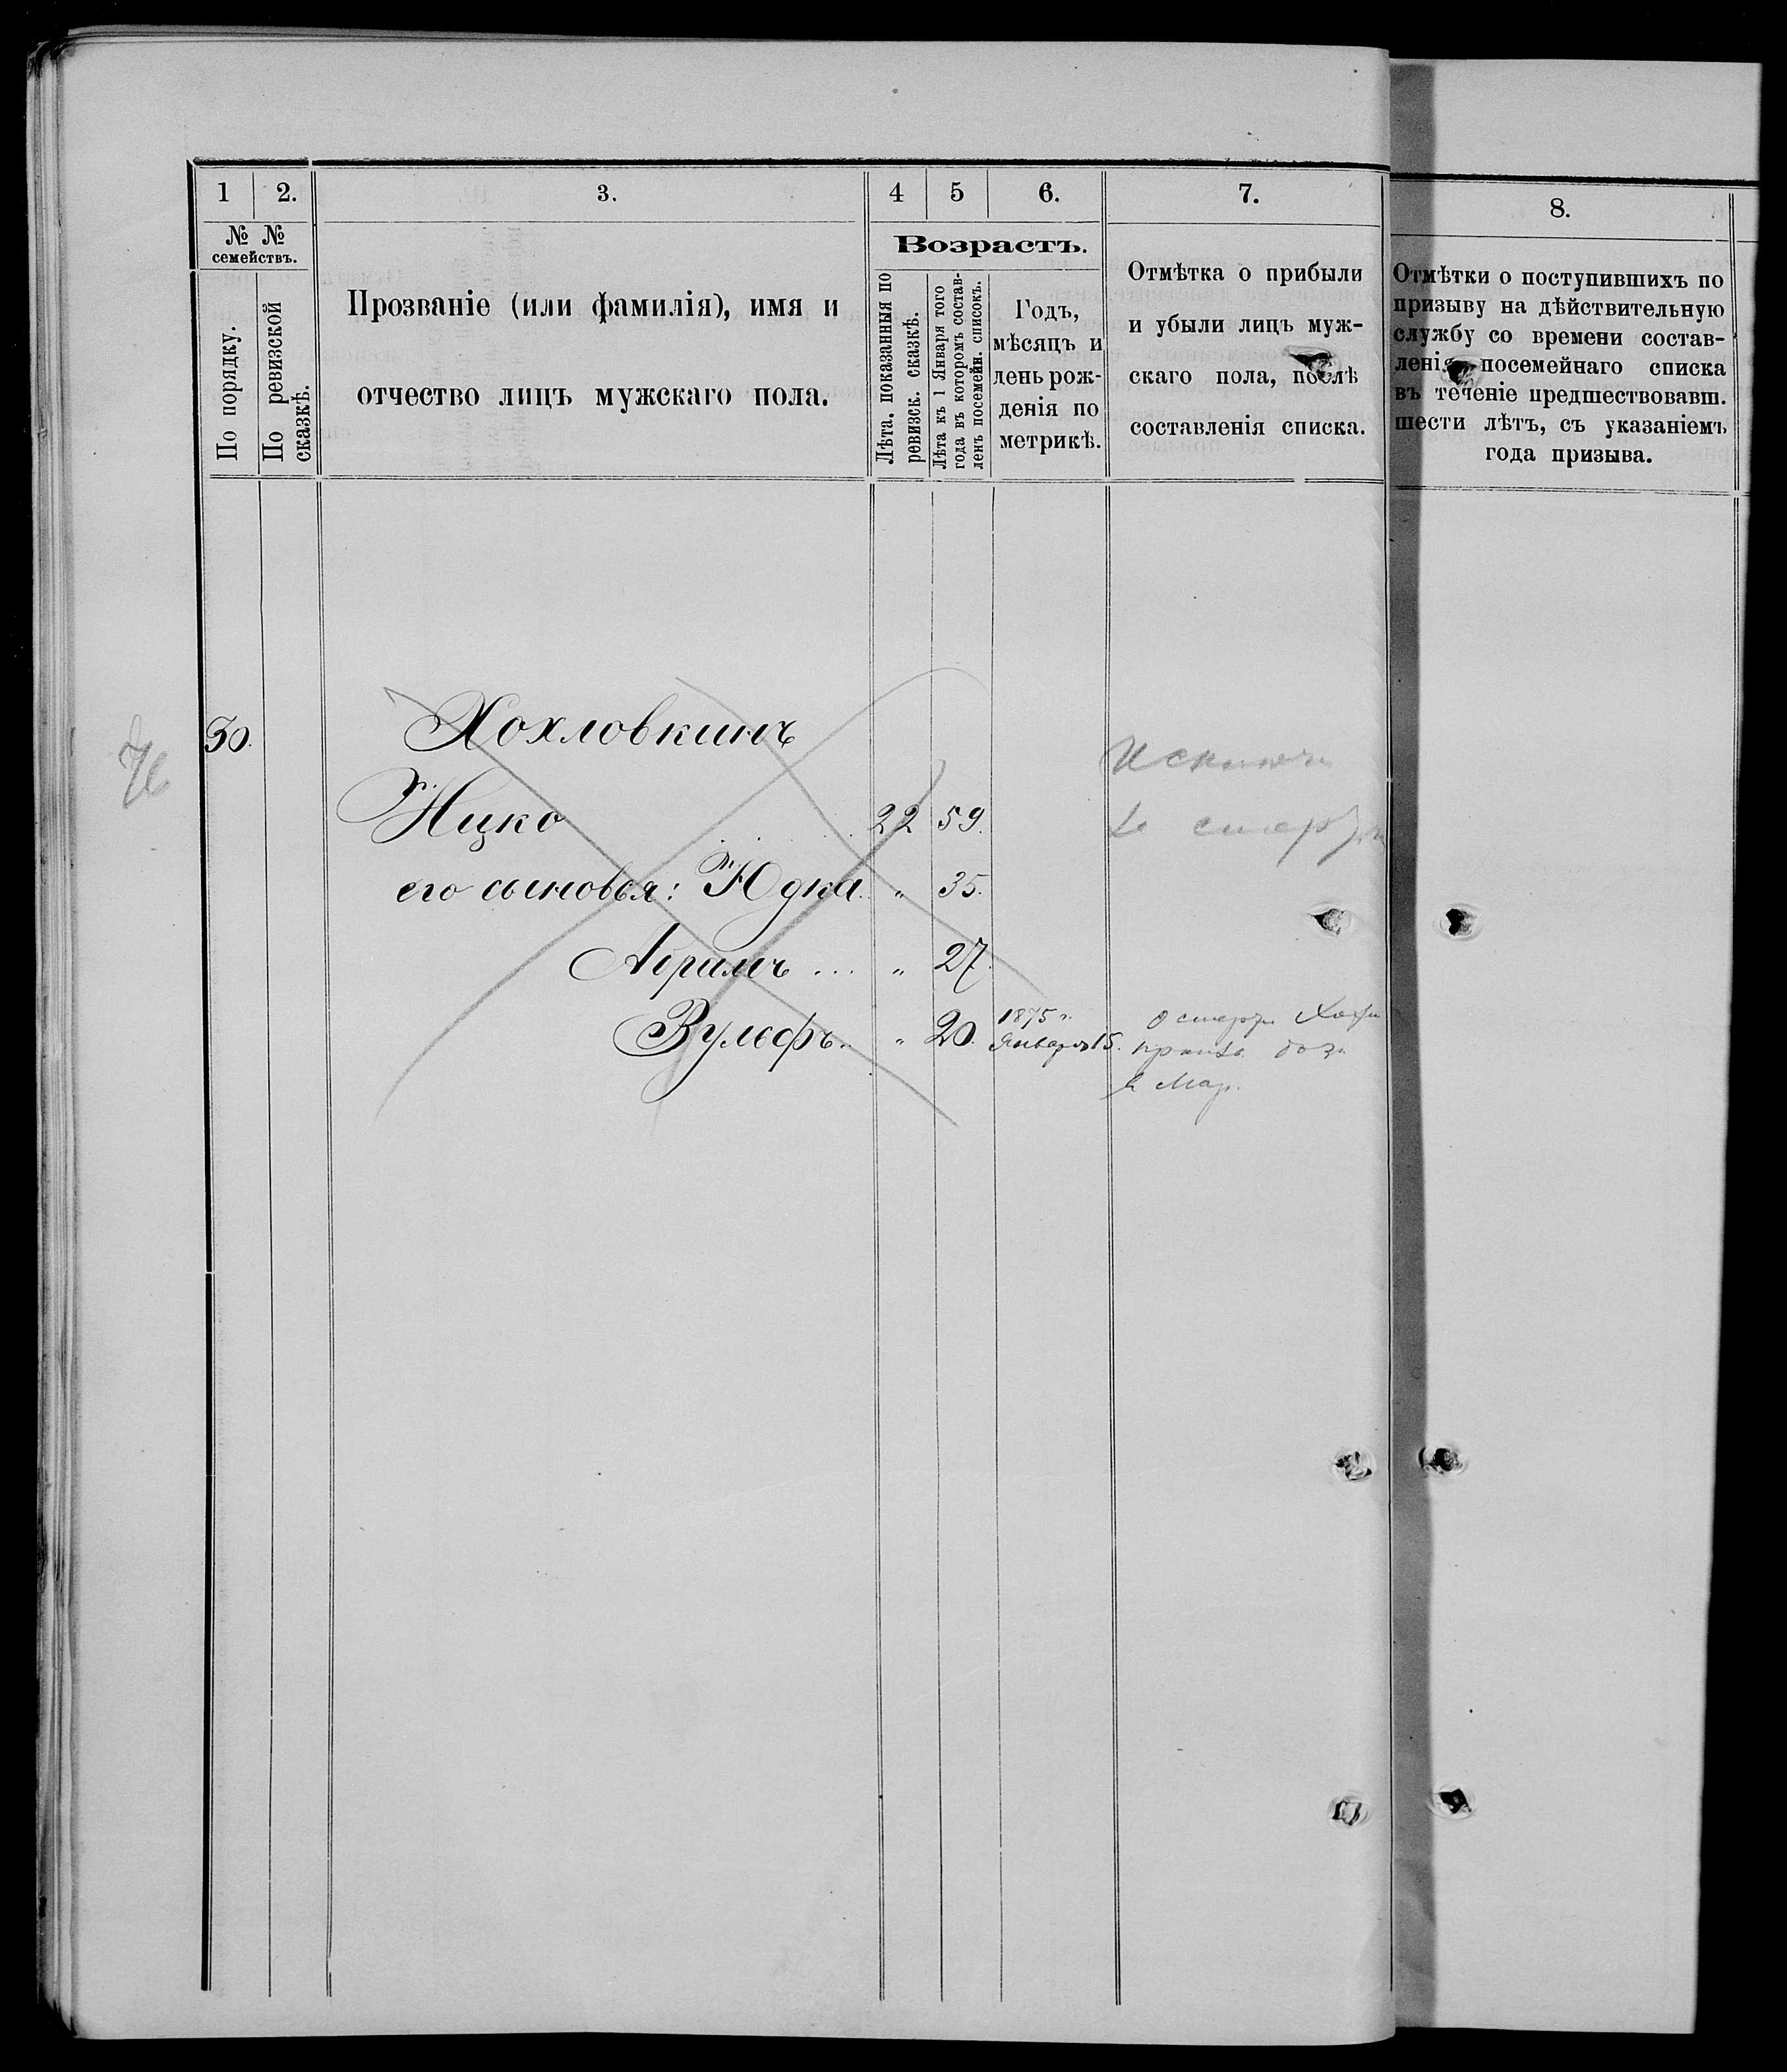 1 2. 3. 4 5 6. 7. 8.
№ №
семействъ.
По порядку.
По ревизской
сказкѣ.
Прозваніе (или фамилія), имя и
отчество лицъ мужскаго пола.
Возрастъ.
Лѣта, показанныя по
ревизск. сказкѣ.
Лѣта къ 1 Января того
года въ которомъ состав-
ленъ посемейн. списокъ.
Годъ,
мѣсяцъ и
день рож-
денія по
метрикѣ.
Отмѣтка о прибыли
и убыли лицъ муж-
скаго пола, послѣ
составленія списка.
Отмѣтки о поступившихъ по
призыву на дѣйствительную
службу со времени состав-
ленія посемейнаго списка
въ теченіе предшествовавш.
шести лѣтъ, съ указаніемъ
года призыва.
30. Хохловкинъ
Ицко 22 59.
его сыновья: Юдка " 35.
Абрамъ ... " 27.
Вульфъ.. " 20. 1875 г.
Января 15.